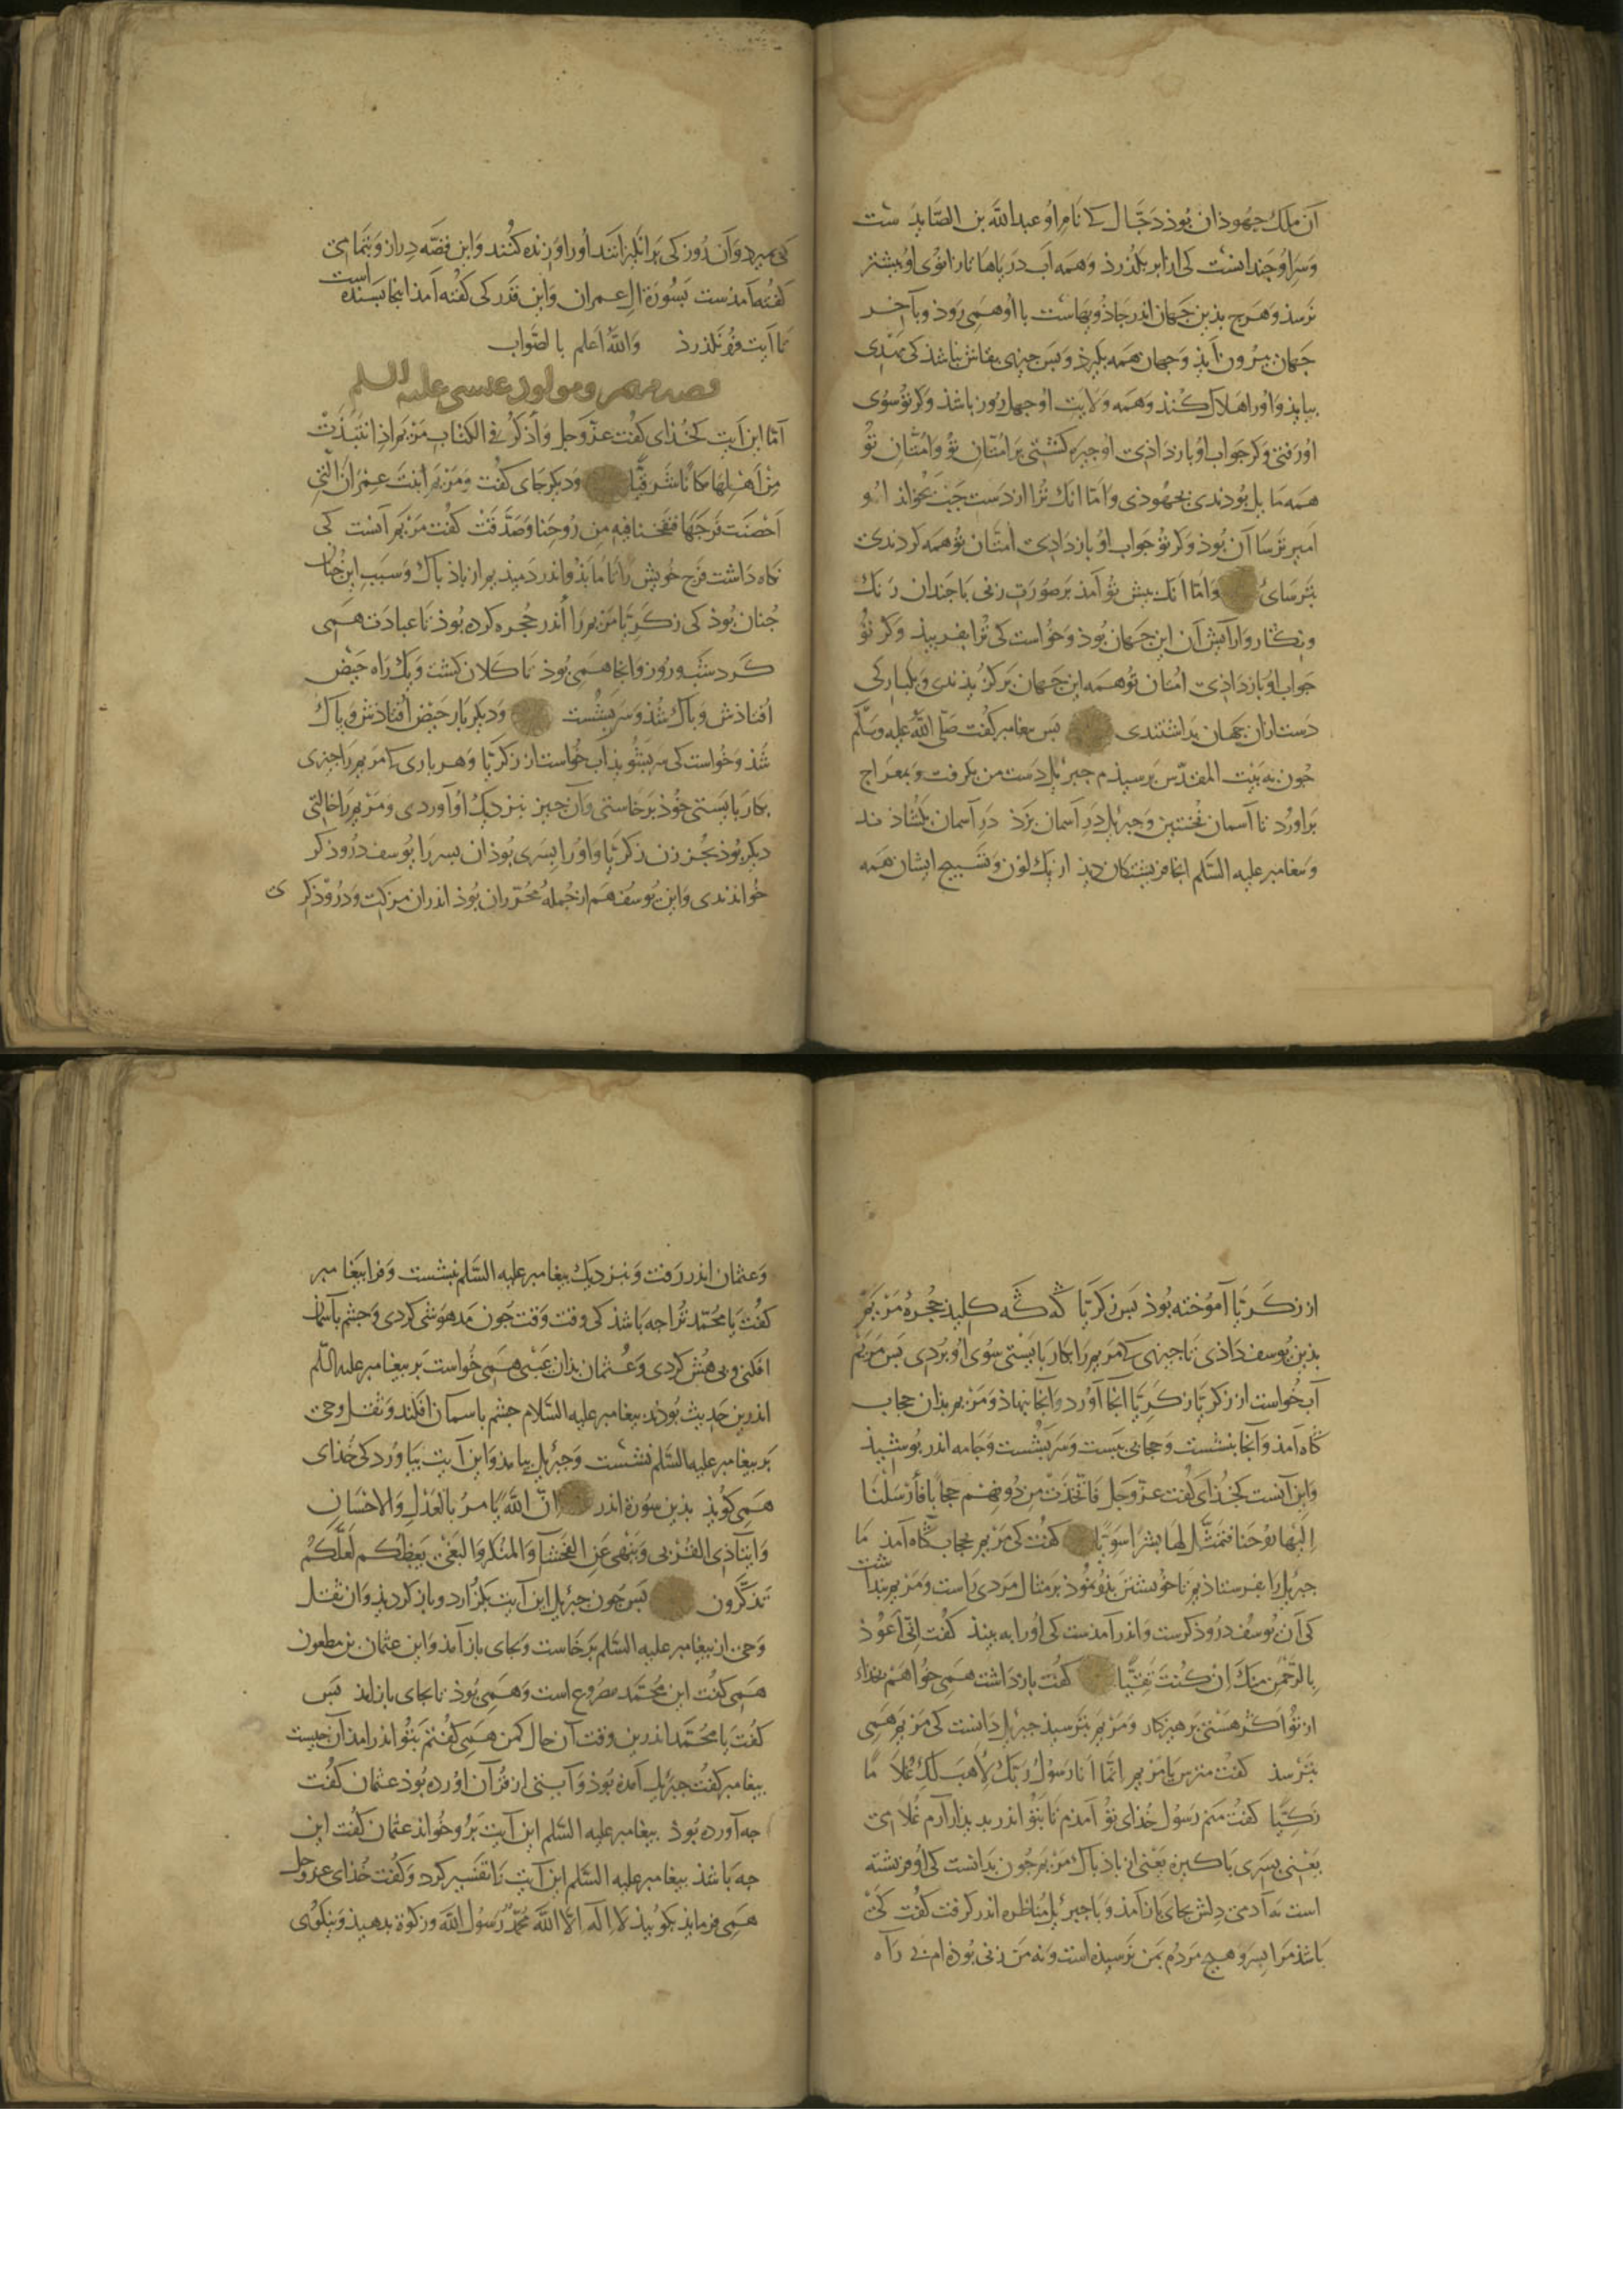 آن ملک جهوذان بوذ دجال کے نام او عبدالله بن الصّایذ ست
وسر او چندانست کی از ابر بگذرذ و همه آب دریاها تا زانوی او بیشتر
نرسذ و هرچ بذین جهان اندر جاذویهاست با او همی روذ و بآخر
جهان بیرون آیذ و جهان همه بگیرذ و بس چیزی بقاش نباشذ کی مهدی
بیایذ و اورا هلاک کنذ و همه ولایت او چهل روز باشذ و کر تو سوی
او رفتی و کر جواب او بازداذی او چیره کشتی بر امتان تو و امتان تو
همه مایل بوذندی بجهوذی و امّا آنک ترا از دست چپ بخواند او
امیر ترسا آن بوذ و کر تو جواب او بازداذی امتان تو همه کردندی
بترسائ و امّا آنک پیش تو آمذ بر صورت زنی با چندان رنک
و نکار و آرایش آن این جهان بوذ و خواست کی ترا بفریبذ و کر تو
جواب او بازداذی امتان تو همه این جهان برکزیذندی و یکبارکی
دست ازان جهان بداشتندی بس پیغامبر کفت صلّی الله علیه وسلّم
چون به بیت المقدّس برسیذم جبرئیل دست من بکرفت و بمعراج
برآورد تا آسمان نخستین و جبرئیل در آسمان بزذ در آسمان بکشاذند
و پیغامبر علیه السّلم آنجا فریشتکان دیذ از یک لون و تسبیح ایشان همه
کی میرد و آن روز کی برانکیزانند اورا و زنده کنند و این قصّه دراز و بتمامی
کفته آمذست بسورة آل عمران و این قدر کی کفته آمذ اینجا بسنده است
تا آیت فرو نکذرذ والله اعلم بالصّواب
قصه مریم و مولود عیسی علیه السلم
امّا این آیت کخذای کفت عزّ وجل وَاذکر فی الکتاب مریم اذ انتبذت
من اهلها مکانا شرقیّا و دیکر جای کفت ومریم ابنت عمران الّتی
احصنت فرجها فنفخنا فیه من روحنا وصدّقت کفت مریم آنست کی
نکاه داشت فرج خویش را تا ما بذو اندر دمیذیم از باذ باک و سبب این چنان
چنان بوذ کی زکریّا مریم را اندر حجره کرده بوذ تا عبادت همی
کرد شب و روز و آنجا همی بوذ تا کلان کشت و یک راه حیض
افتاذش و باک شذ و سر بشست و دیکر بار حیض افتاذش و باک
شذ و خواست کی سر بشویذ آب خواست از زکریّا و هر باری کے مریم را چیزی
بکار بایستی خوذ برخاستی و آن چیز بنزدیک او آوردی و مریم را خالتی
دیکر بوذ بجز زن زکریّا و اورا پسری بوذ آن پسر را یوسف دروذکر
خواندندی و این یوسف هم از جملهٔ محرّران بوذ اندران مزکت و دروذکری
از زکریّا آموخته بوذ بس زکریّا که که کلیذ حجرهٔ مریم
بذین یوسف داذی تا چیزی کے مریم را بکار بایستی سوی او بردی بس مریم
آب خواست از زکریّا زکریّا آنجا آورد و آنجا بنهاذ و مریم بذان حجاب
کاه آمذ و آنجا بنشست و حجابی ببست و سر بشست و جامه اندر بوشیذ
و این آنست کخذای کفت عزّ وجل فاتّخذت من دونهم حجابا فارسلنا
الیها روحنا فتمثّل لها بشرا سویّا کفت کی مریم بحجاب کاه آمذ ما
جبرئیل را بفرستاذیم تا خویشتن بذو نموذ بر مثال مردی راست و مریم بنداشت
کی آن یوسف دروذکرست و اندر آمذست کی اورا به بینذ کفت انّی اعوذ
بالرّحمن منک ان کنت تقیّا کفت بازداشت همی خواهم بخذای
از تو اکر هستی برهیزکار و مریم بترسیذ جبرئیل دانست کی مریم همی
بترسذ کفت مترس یا مریم انّما انا رسول ربّک لاهب لک غلاما
زکیّا کفت منم رسول خذای تو آمذم تا بتو اندر بدیدار آرم غلامی
یعنی پسری باکیزه یعنی از باذ باک مریم چون بدانست کی او فریشته
است نه آدمی دلش بجای بازآمذ و با جبرئیل مناظره اندر کرفت کفت کی
باشذ مرا پسر و هیچ مردم بمن نرسیذه است و نه من زنی بوذه ام بی راه
و عثمان اندر رفت و بنزدیک پیغامبر علیه السّلم بنشست و فرا پیغامبر
کفت یا محمّد ترا چه باشذ کی وقت وقت چون مدهوشی کردی و چشم بآسمان
افکنی و بی هش کردی و عثمان بذان عیبی همی خواست بر پیغامبر علیه السّلم
اندرین حدیث بوذند پیغامبر علیه السّلام چشم باسمان افکند و ثقل وحی
بر پیغامبر علیه السّلم نشست و جبرئیل بیامذ و این آیت بیاورد کی خذای
همی کویذ بذین سورة اندر انّ الله یامر بالعدل والاحسان
وایتآء ذی القربی وینهی عن الفحشآء والمنکر والبغی یعظکم لعلّکم
تذکّرون بس چون جبرئیل این آیت بکزارد و بازکردیذ و آن ثقل
وحی از پیغامبر علیه السّلم برخاست و بجای بازآمذ و این عثمان بن مظعون
همی کفت این محمّد مصروع است و همی بوذ تا بجای بازآیذ بس
کفت یا محمّد اندرین وقت آن حال کمن همی کفتم بتو اندر آمذ آن چیست
پیغامبر کفت جبرئیل آمذه بوذ و آیتی از قرآن آورده بوذ عثمان کفت
چه آورده بوذ پیغامبر علیه السّلم این آیت برو خواند عثمان کفت این
چه باشذ پیغامبر علیه السّلم این آیت را تفسیر کرد و کفت خذای عزّ وجل
همی فرمایذ بکوییذ لا اله الّا الله محمّد رسول الله و زکوة بدهیذ و نیکوی